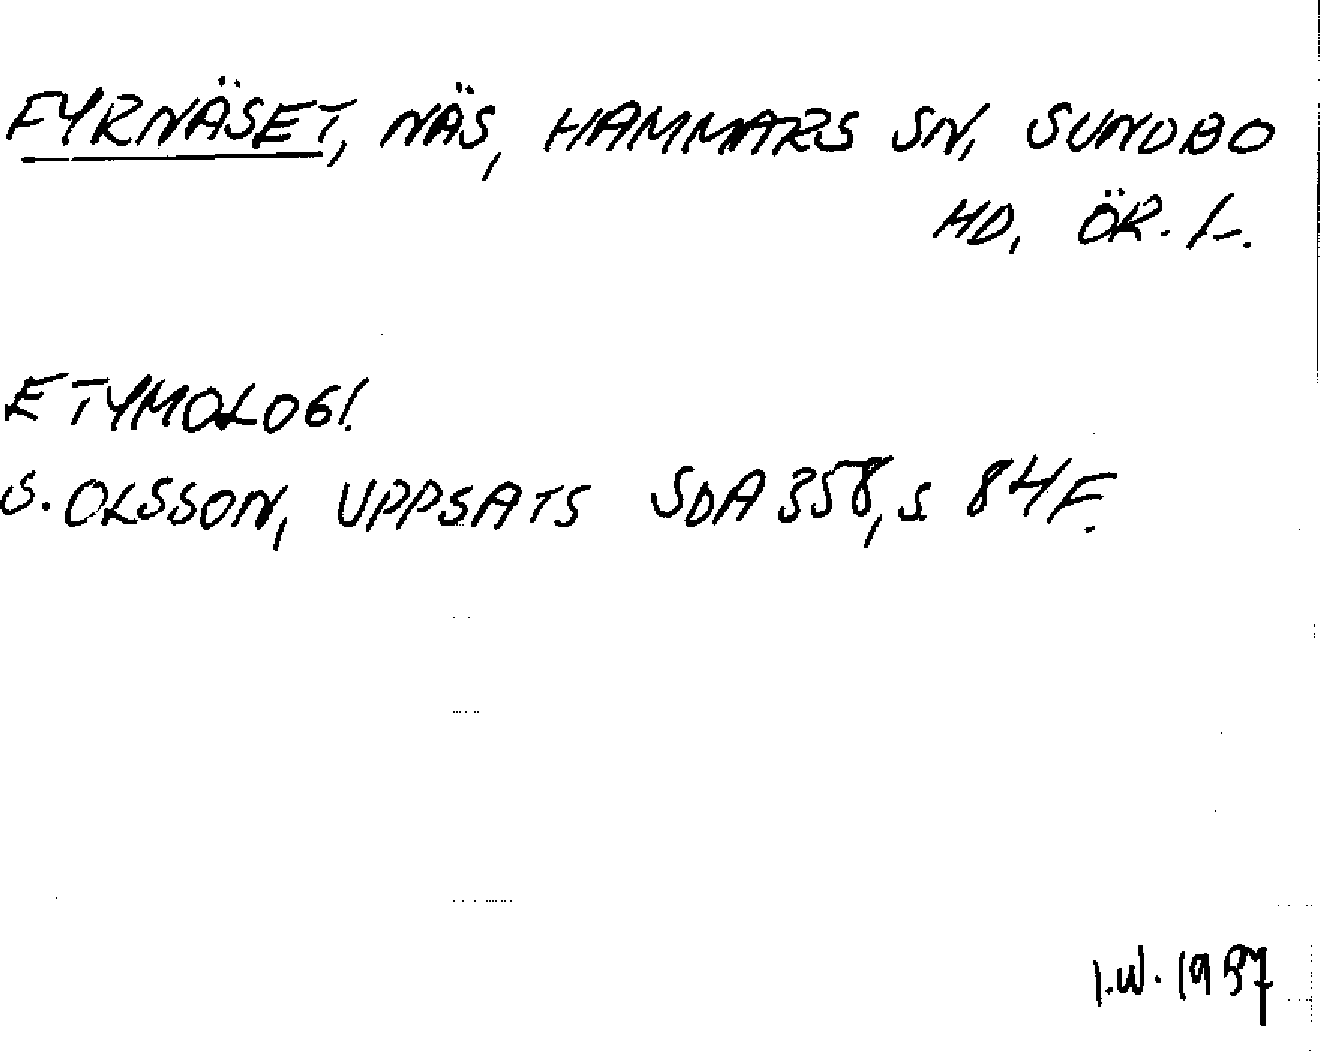 FYRNÄSET, NÄS, HAMMARS SN, SUNDBO
HD, ÖR. L.
ETYMOLOGI.
S. OLSSON, UPPSATS SDA 358, S 84 F.
I.W. 1987